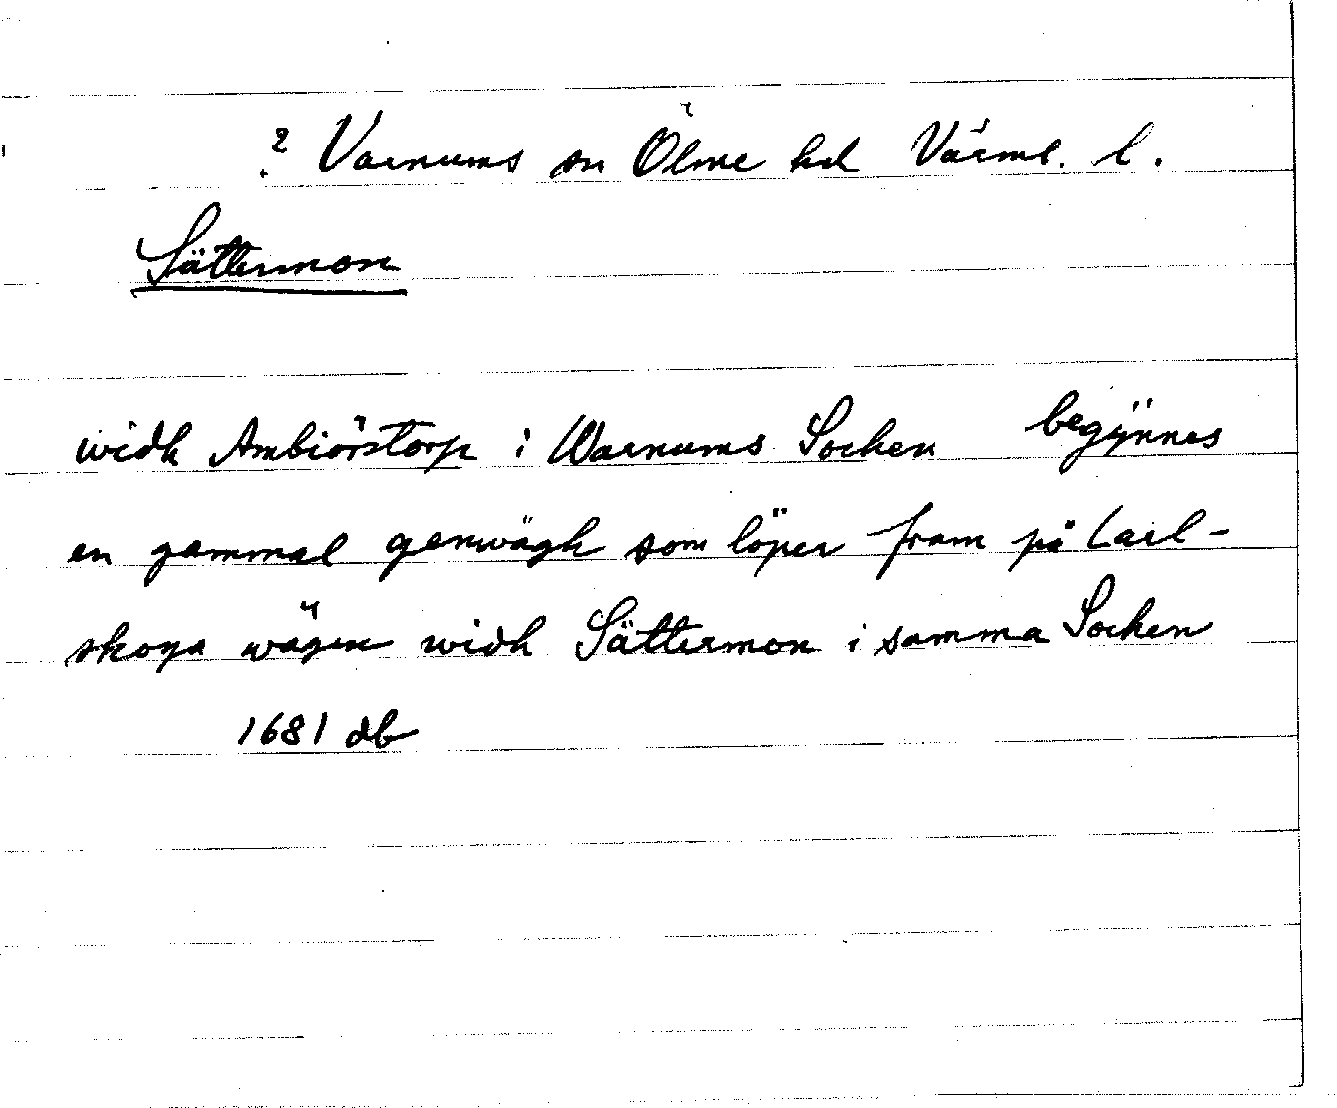 ? Varnums sn Ölme hd Värml. l.
Sättermon
widh Ambiörstorp i Warnums Socken begÿnnes
en gammal genwägh som löper fram på Carl-
skoga wägen widh Sättermon i samma Socken
1681 db